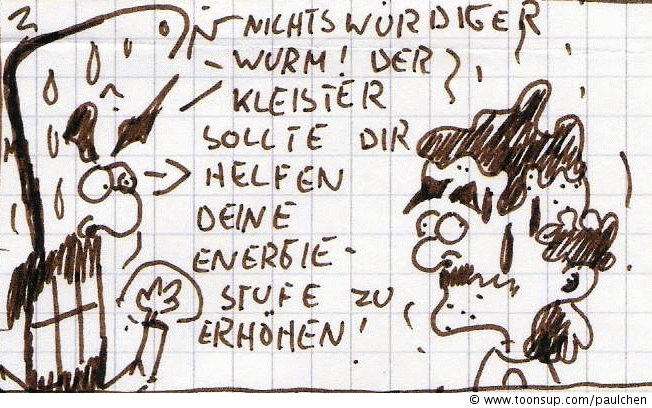 NICHTSWÜRDIGER
WURM! DER
KLEISTER
SOLLTE DIR
HELFEN
DEINE
ENERGIE-
STUFE ZU
ERHÖHEN!
© www.toonsup.com/paulchen